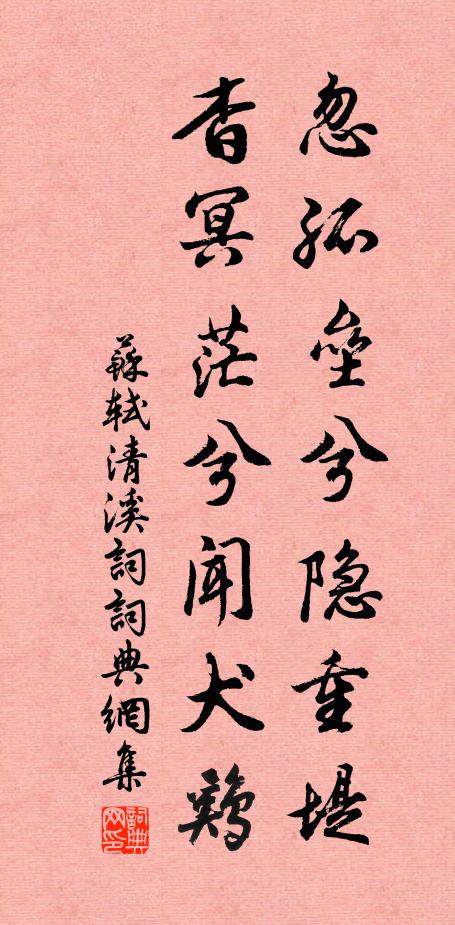 忽孤垒兮隐重堤
杳冥茫兮闻犬鷄
蘇轼清溪詞詞典網集
詞典网印